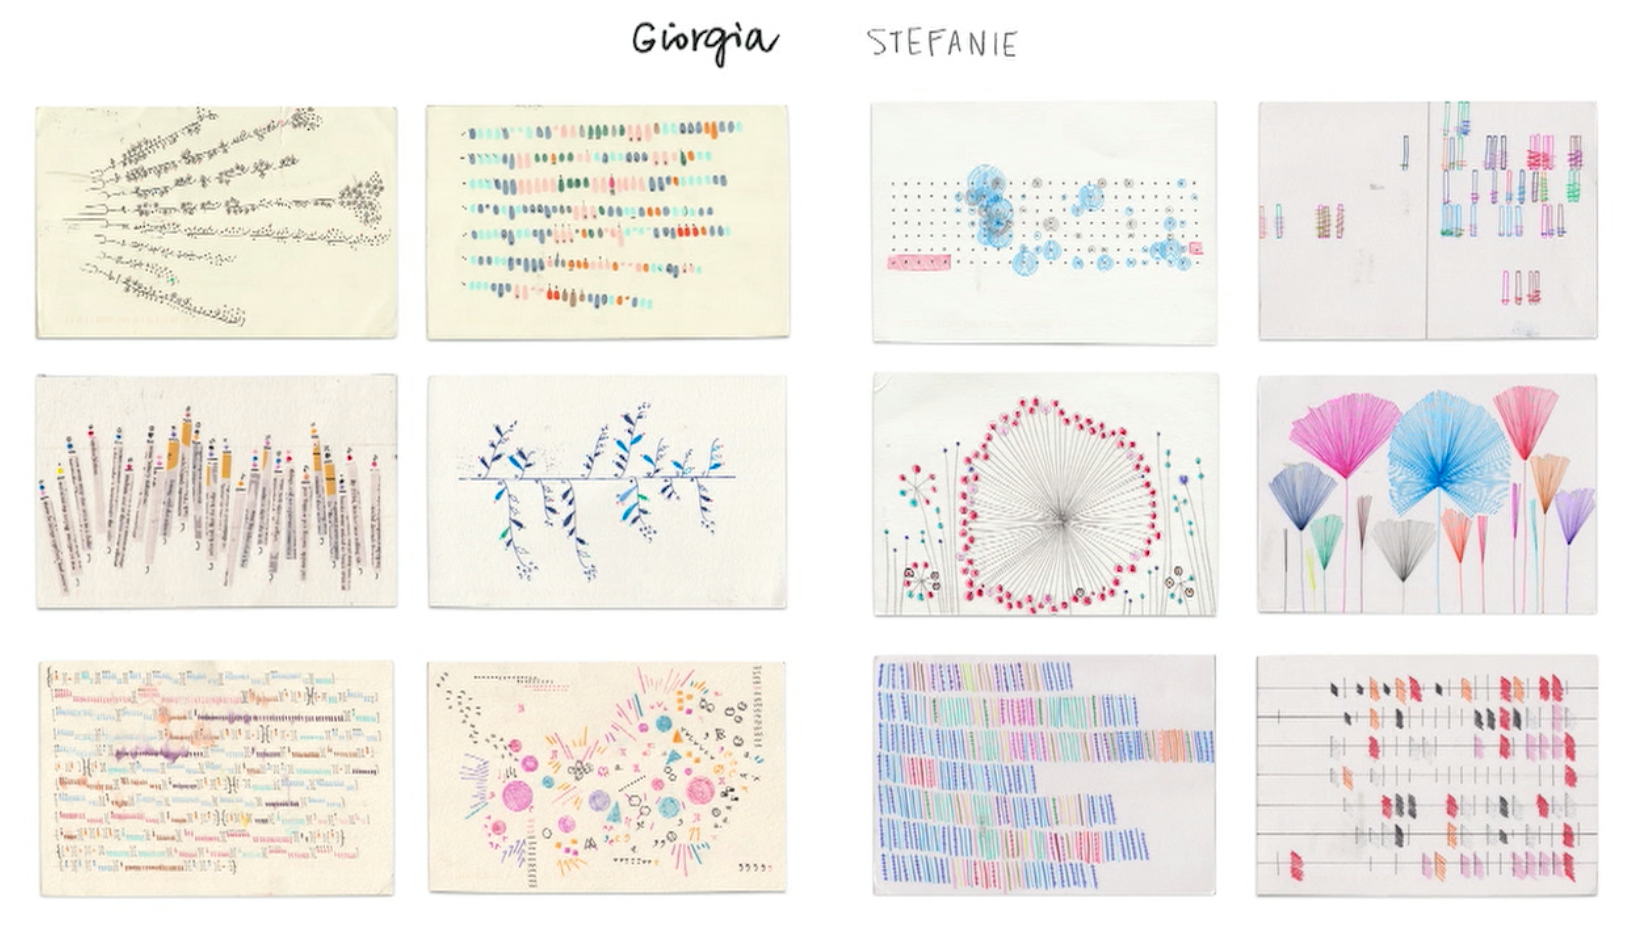 Giorgia
STEFANIE